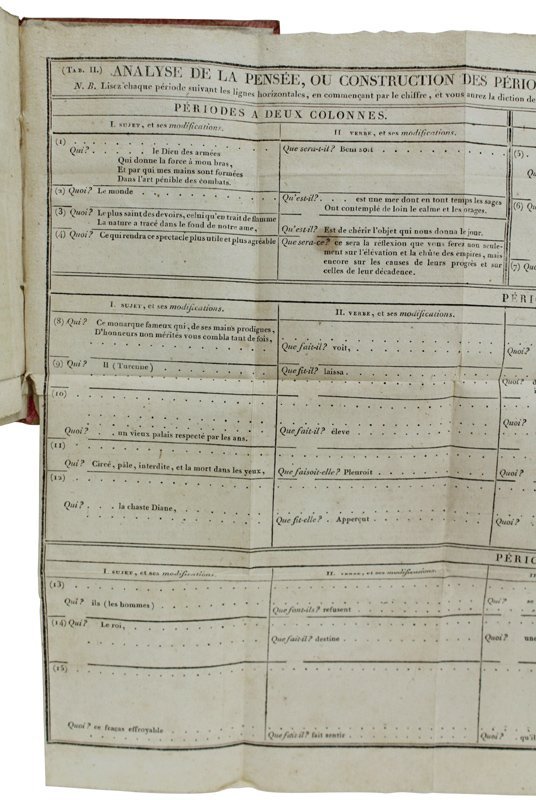 (TAB. II.) ANALYSE DE LA PENSÉE, OU CONSTRUCTION DES PÉRIO
N. B. Lisez chaque période suivant les lignes horizontales, en commençant par le chiffre, et vous aurez la diction de
PÉRIODES A DEUX COLONNES.
I. SUJET, et ses modifications.
II VERBE, et ses modifications.
(1)
Qui? le Dieu des armées
Qui donne la force à mon bras,
Et par qui mes mains sont formées
Dans l'art pénible des combats.
Que sera-t-il? Beni soit
(5)
(2) Quoi? Le monde
Qu'est-il? est une mer dont en tout temps les sages
Ont contemplé de loin le calme et les orages.
(3) Quoi? Le plus saint des devoirs, celui qu'en trait de flamme
La nature a tracé dans le fond de notre ame,
Qu'est-il? Est de chérir l'objet qui nous donna le jour.
(6)
(4) Quoi? Ce qui rendra ce spectacle plus utile et plus agréable
Que sera-ce? ce sera la réflexion que vous ferez non seule-
ment sur l'élévation et la chûte des empires, mais
encore sur les causes de leurs progrès et sur
celles de leur décadence.
(7)
PÉRI
I. SUJET, et ses modifications.
II. VERBE, et ses modifications.
(8) Qui? Ce monarque fameux qui, de ses mains prodigues,
D'honneurs non mérités vous combla tant de fois,
Que fait-il? voit,
Quoi?
(9) Qui? Il (Turenne)
Que fit-il? laissa
Quoi?
(10)
Quoi? un vieux palais respecté par les ans.
Que fait-il? élève
Quoi?
(11)
Qui? Circé, pâle, interdite, et la mort dans les yeux,
Que faisoit-elle? Pleuroit
Quoi?
(12)
Qui? la chaste Diane,
Que fit-elle? Apperçut
Quoi?
PÉRIO
I. SUJET, et ses modifications.
II. VERBE, et ses modifications.
(13)
Qui? ils (les hommes)
Que font-ils? refusent
Quoi? se
(14) Qui? Le roi,
Que fait-il? destine
Quoi? une
(15)
Quoi? ce fracas effroyable
Que fait-il? fait sentir
Quoi? qu'il